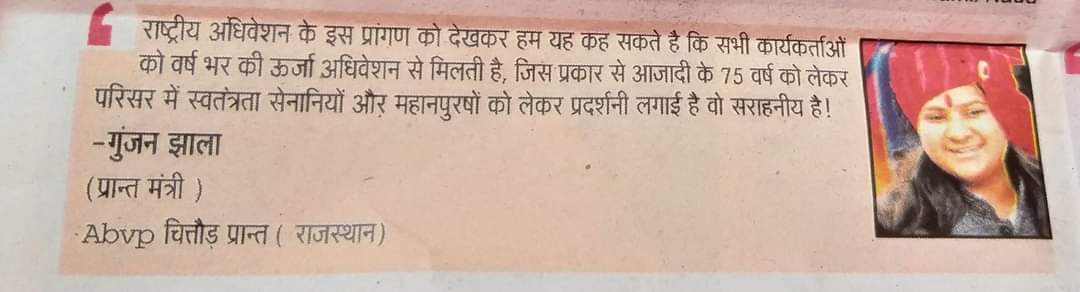 राष्ट्रीय अधिवेशन के इस प्रांगण को देखकर हम यह कह सकते है कि सभी कार्यकर्ताओं
को वर्ष भर की ऊर्जा अधिवेशन से मिलती है, जिस प्रकार से आजादी के 75 वर्ष को लेकर
परिसर में स्वतंत्रता सेनानियों और महानपुरषों को लेकर प्रदर्शनी लगाई है वो सराहनीय है!
-गुंजन झाला
(प्रान्त मंत्री )
Abvp चित्तौड़ प्रान्त ( राजस्थान)